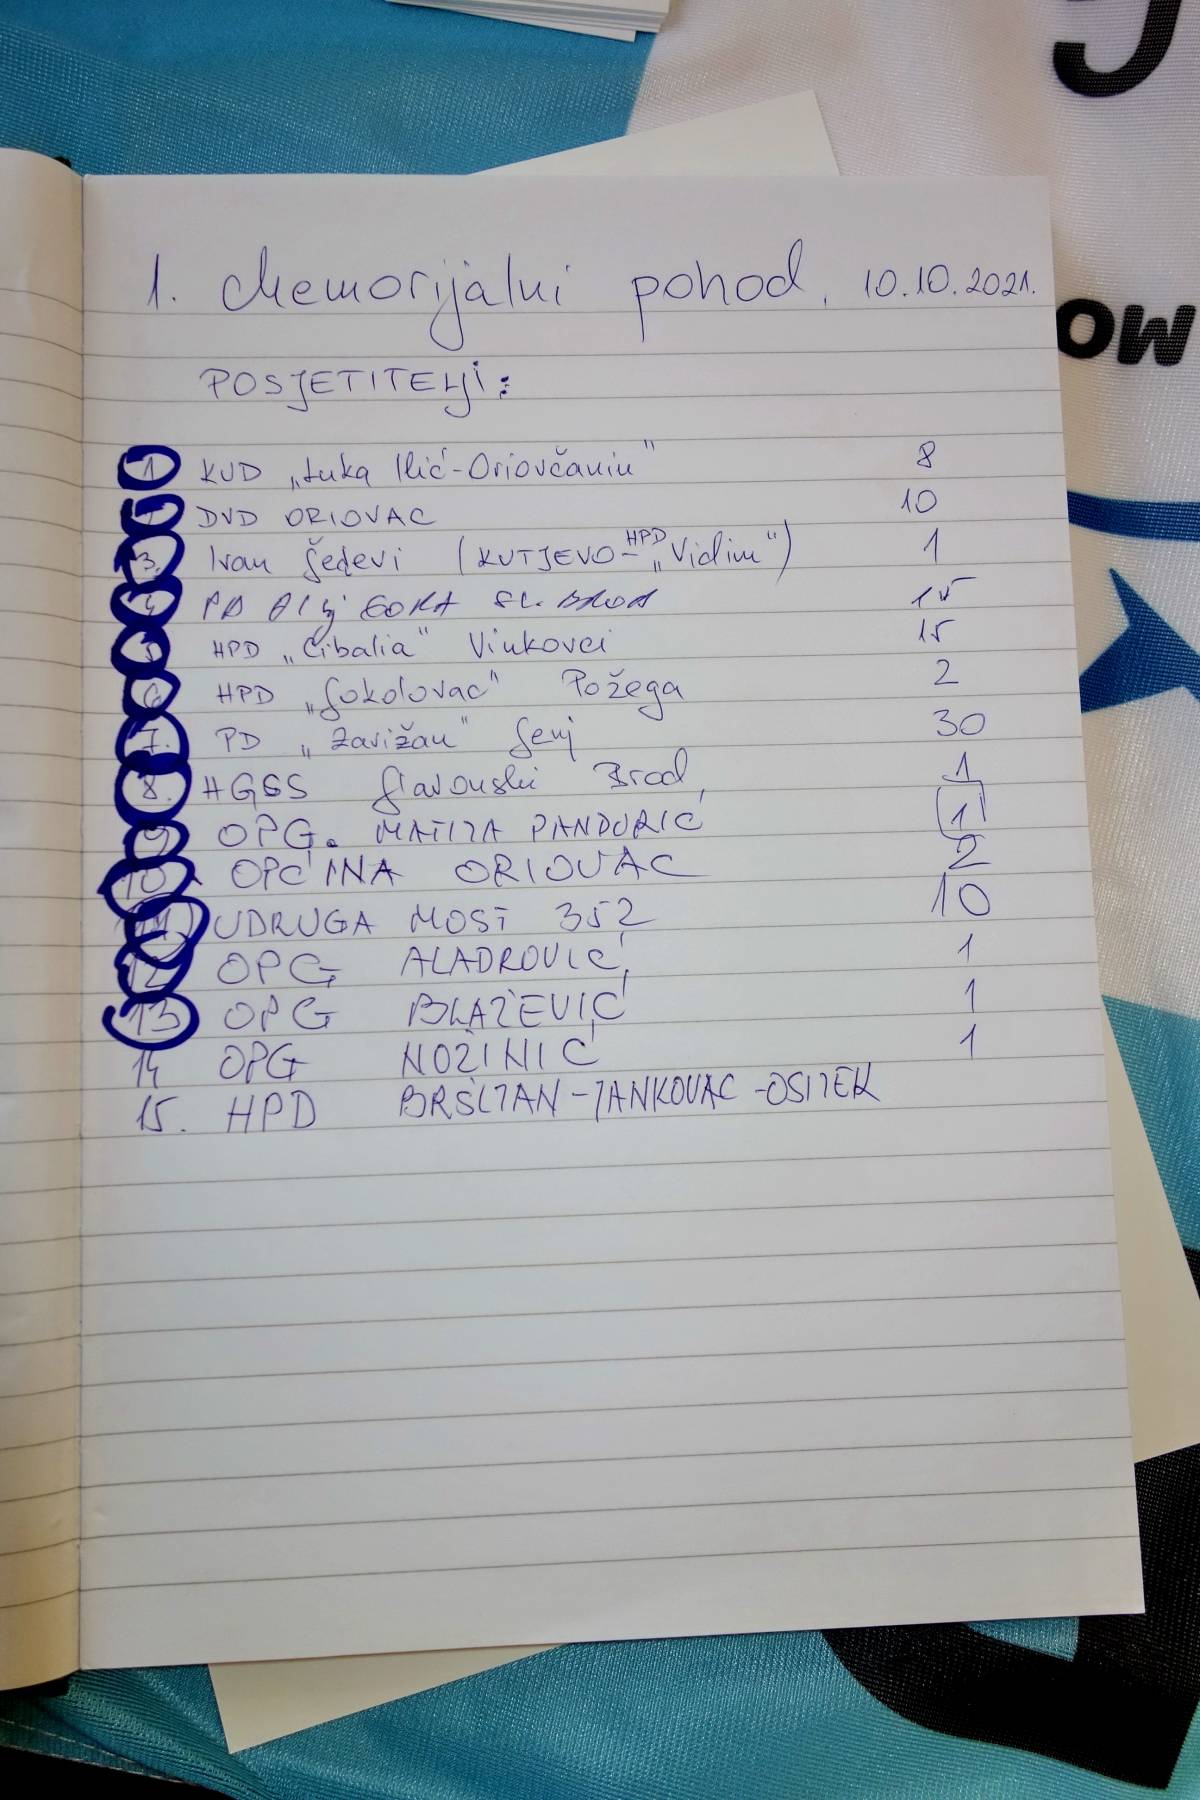 J
OW
1. Memorijalni pohod, 10.10.2021.
POSJETITELJI:
1 KUD „Luka Ilić-Oriovčanin" 8
2 DVD ORIOVAC 10
3. Ivan Šedevi (KUTJEVO - HPD „Vidim") 1
4 PD GORA SL. BROD 15
5 HPD „Cibalia" Vinkovci 15
6 HPD „Sokolovac" Požega 2
7. PD „Zavižan" Senj 30
8. HGSS Slavonski Brod 1
9 OPG. MATIJA PANDURIĆ 1
10. OPĆINA ORIOVAC 2
11 UDRUGA MOST 352 10
12 OPG ALADROVIĆ 1
13 OPG BLAŽEVIĆ 1
14 OPG NOŽINIĆ 1
15. HPD BRŠLJAN-JANKOVAC-OSIJEK